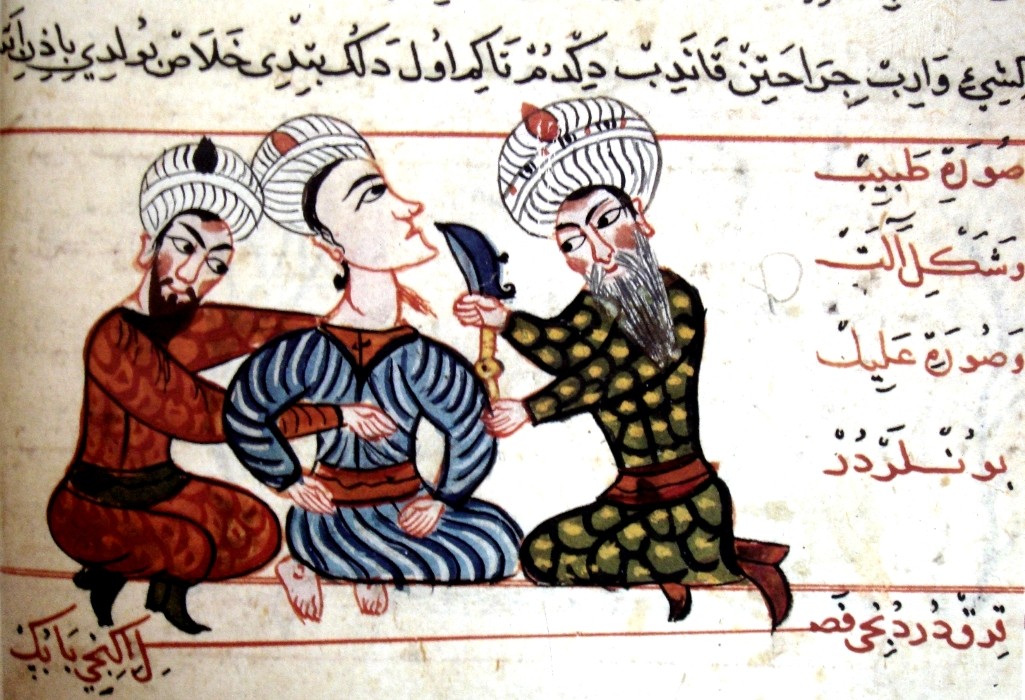 وَارِبْ جِرَاحَتِنْ قَانَدِبْ دِكْدُمْ تَاكِم اُول دَلُكْ بِتْدِى خَلَاصْ بُولدِي بِاِذْنِ
صُورَةِ طَبِيبْ
وَشَكْلِ آلَتْ
وَصُورَةِ عَلِيلْ
بُونْلَرْدُرْ
قِرقْ دُردُنْجِي فَصْل اِكِنْجِي بَابُكْ